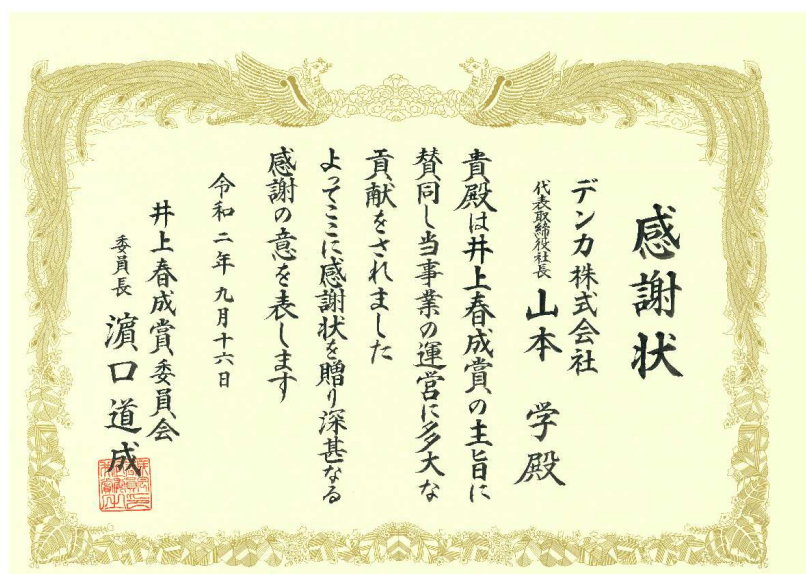 感謝状
デンカ株式会社
代表取締役社長 山本 学殿
貴殿は井上春成賞の主旨に
賛同し当事業の運営に多大な
貢献をされました
よってここに感謝状を贈り深甚なる
感謝の意を表します
令和二年九月十六日
井上春成賞委員会
委員長 濵口道成